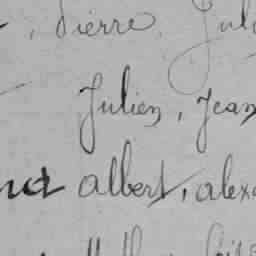 , Pierre, Jul
Julien, Jean
na albert, alex